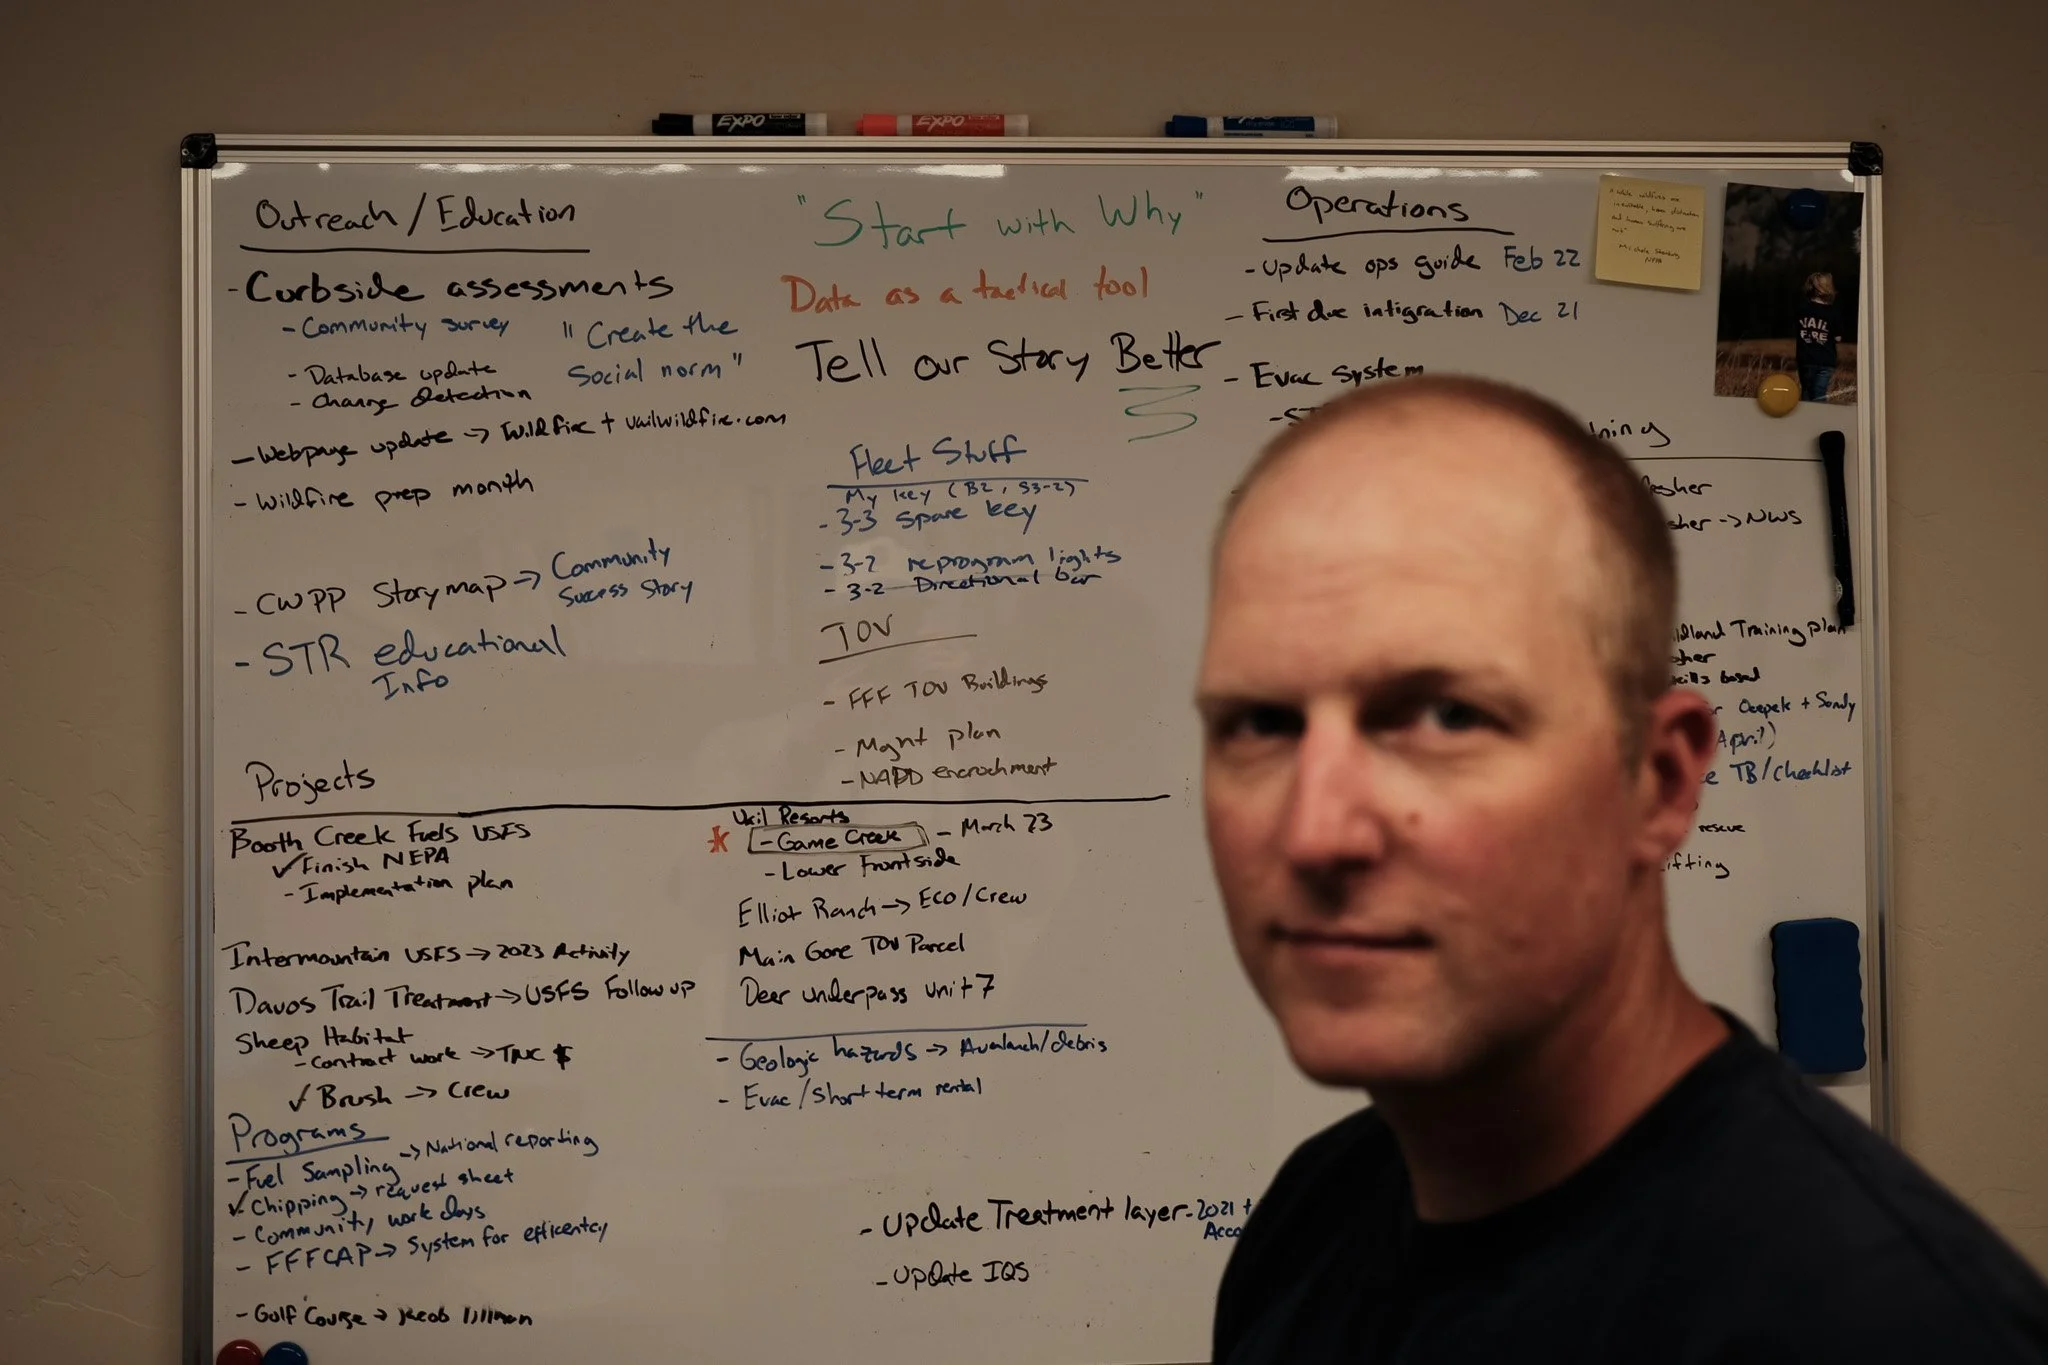 EXPO
EXPO
Outreach / Education
- Curbside assessments
- Community survey
"Create the
Social norm"
- Database update
- Change detection
- Webpage update → Wildfire + vailwildfire.com
- Wildfire prep month
- CWPP Storymap → Community
Success Story
- STR educational
Info
"Start with Why"
Data as a tactical tool
Tell our Story Better
Fleet Stuff
My key (B2, S3-2)
- 3-3 spare key
- 3-2 reprogram lights
- 3-2 Directional bar
TOV
- FFF TOV Buildings
- Mgnt plan
- NAPD encrochment
Operations
- Update ops guide Feb 22
- First due intigration Dec 21
- Evac system
VAIL
FIRE
ning
→ NWS
ldland Training plan
Skills based
Deepek + Sandy
April)
TB/Checklist
rescue
ifting
Projects
Booth Creek Fuels USFS
✓ Finish NEPA
- Implementation plan
Intermountain USFS → 2023 Activity
Davos Trail Treatment → USFS Follow up
Sheep Habitat
- Contract work → TNC $
✓ Brush → Crew
Vail Resorts
* - Game Creek - March 23
- Lower Frontside
Elliot Ranch → ECO/Crew
Main Gore TOV Parcel
Deer underpass unit 7
- Geologic hazards → Avalanch/debris
- Evac/short term rental
Programs
- Fuel Sampling → National reporting
✓ Chipping → request sheet
- Community work days
- FFFCAP → System for efficentcy
- Golf Course →
- Update Treatment layer - 2021 +
- Update IQS